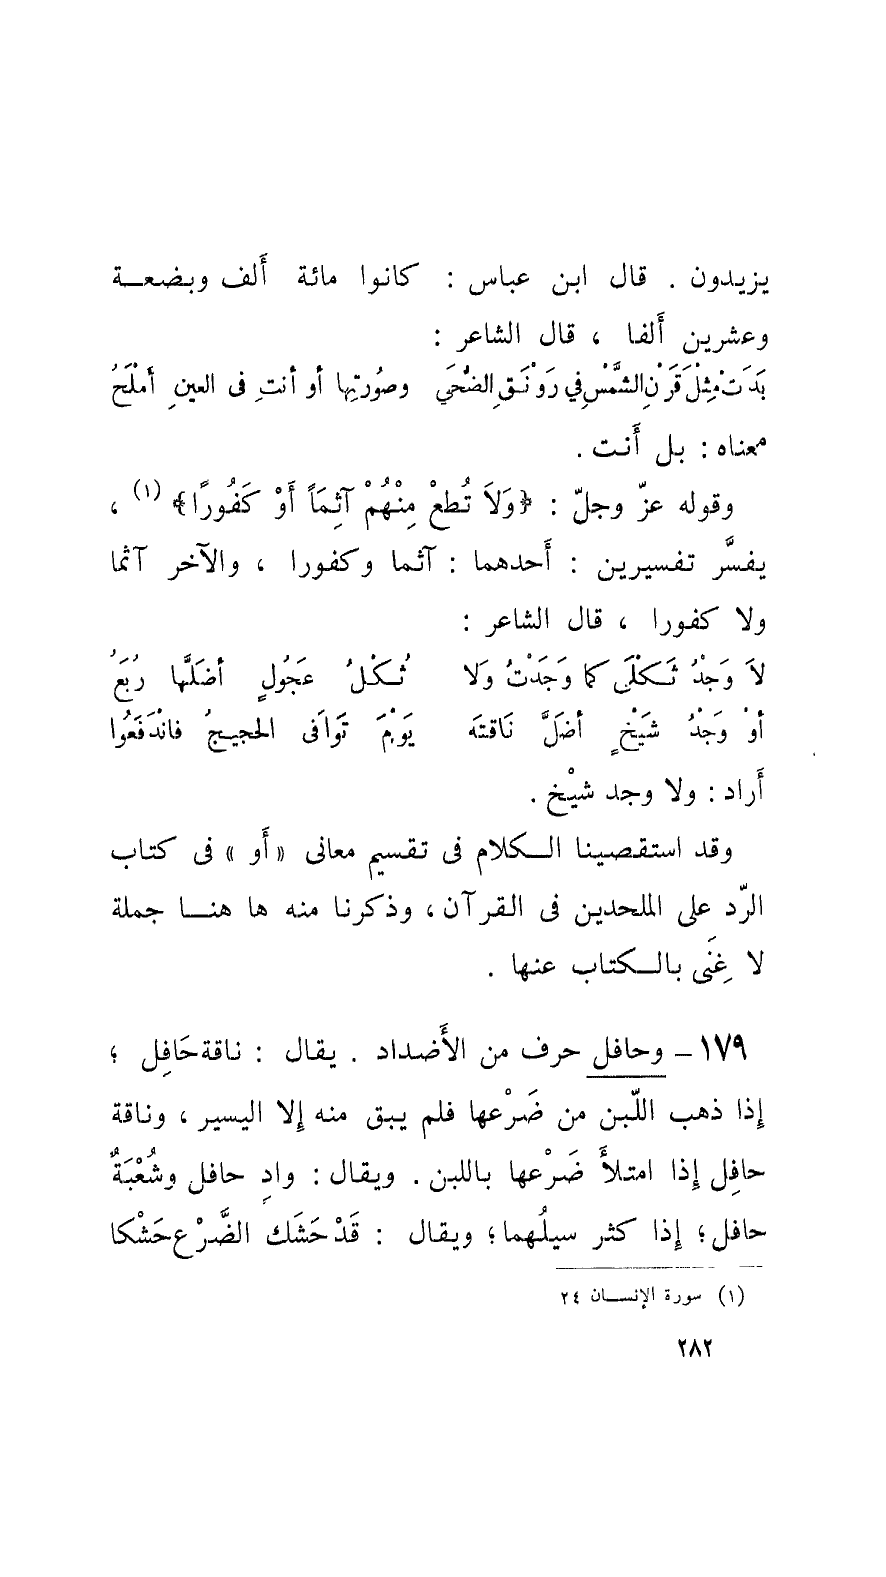 يزيدون . قال ابن عباس : كانوا مائة أَلف وبضعة
وعشرين أَلفا ، قال الشاعر :
بَدَتْ مِثْلَ قَرْنِ الشَّمْسِ فِي رَوْنَقِ الضُّحَي وصُورتِها أو أنتِ فى العينِ أملَحُ
معناه : بل أَنت .
وقوله عزّ وجلّ : ﴿وَلاَ تُطِعْ مِنْهُمْ آثِمَاً أَوْ كَفُورًا﴾ (١) ،
يفسَّر تفسيرين : أَحدهما : آثما وكفورا ، والآخر آثما
ولا كفورا ، قال الشاعر :
لاَ وَجْدُ ثَكْلَى كما وَجَدْتُ وَلا ثُكْلُ عَجُولٍ أضَلَّها رُبَعُ
أوْ وَجْدُ شَيْخٍ أضَلَّ نَاقتَه يَوْمَ تَوَافَى الحجيجُ فانْدَفَعُوا
أَراد : ولا وجد شيْخ .
وقد استقصينا الكلام فى تقسيم معانى « أَو » فى كتاب
الرّد على الملحدين فى القرآن ، وذكرنا منه ها هنا جملة
لا غِنَى بالكتاب عنها .
١٧٩ – وحافل حرف من الأَضداد . يقال : ناقة حَافِل ؛
إِذا ذهب اللّبن من ضَرْعها فلم يبق منه إِلا اليسير ، وناقة
حافِل إِذا امتلأَ ضَرْعها باللبن . ويقال : وادٍ حافل وشُعْبَةٌ
حافل ؛ إِذا كثر سيلُهما ؛ ويقال : قَدْ حَشَك الضَّرْع حَشْكا
(١) سورة الإنسان ٢٤
٢٨٢